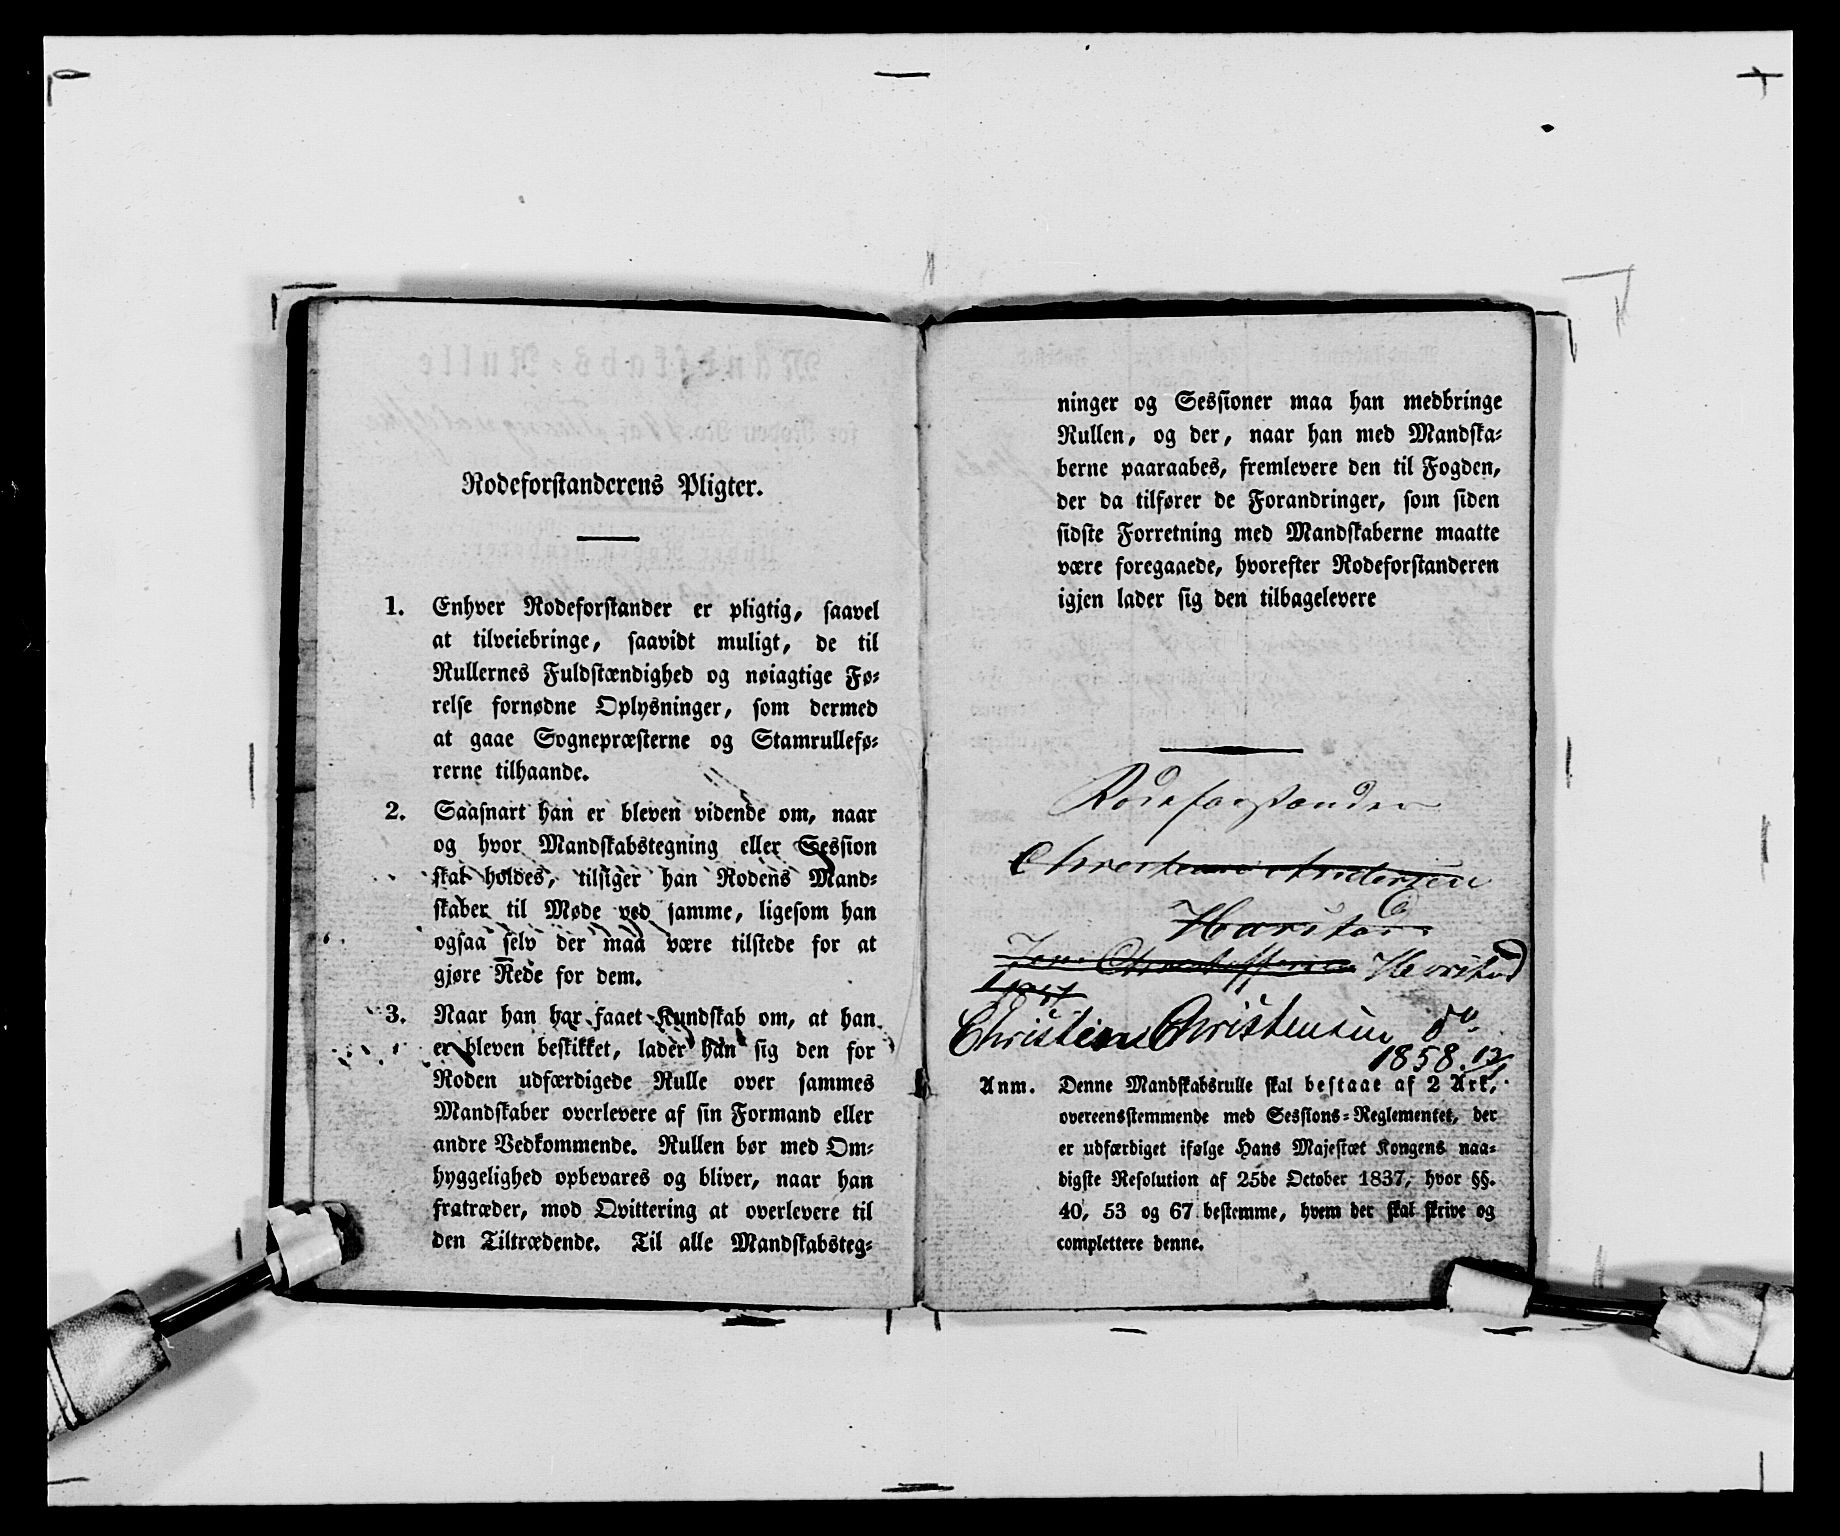 Rodeforstanderens Pligter.
1. Enhver Rodeforstander er pligtig, saavel
at tilveiebringe, saavidt muligt, de til
Rullernes Fuldstændighed og nøiagtige Fø-
relse fornødne Oplysninger, som dermed
at gaae Sognepræsterne og Stamrullefø-
rerne tilhaande.
2. Saasnart han er bleven vidende om, naar
og hvor Mandskabstegning eller Session
skal holdes, tilsiger han Rodens Mand-
skaber til Møde ved samme, ligesom han
ogsaa selv der maa være tilstede for at
gjøre Rede for dem.
3. Naar han har faaet Kundskab om, at han
er bleven beskikket, lader han sig den for
Roden udfærdigede Rulle over sammes
Mandskaber overlevere af sin Formand eller
andre Vedkommende. Rullen bør med Om-
hyggelighed opbevares og bliver, naar han
fratræder, mod Qvittering at overlevere til
den Tiltrædende. Til alle Mandskabsteg-
ninger og Sessioner maa han medbringe
Rullen, og der, naar han med Mandska-
berne paaraabes, fremlevere den til Fogden,
der da tilfører de Forandringer, som siden
sidste Forretning med Mandskaberne maatte
være foregaaede, hvorefter Rodeforstanderen
igjen lader sig den tilbagelevere
Rodeforstander
Christian Andersen
Harstad
Jens Christoffersen Harstad
Christian Christensen do
1858.
Anm. Denne Mandskabsrulle skal bestaae af 2 Ark,
overeensstemmende med Sessions-Reglementet, der
er udfærdiget ifølge Hans Majestæt Kongens naa-
digste Resolution af 25de October 1837, hvor §§.
40, 53 og 67 bestemme, hvem der skal skrive og
complettere denne.